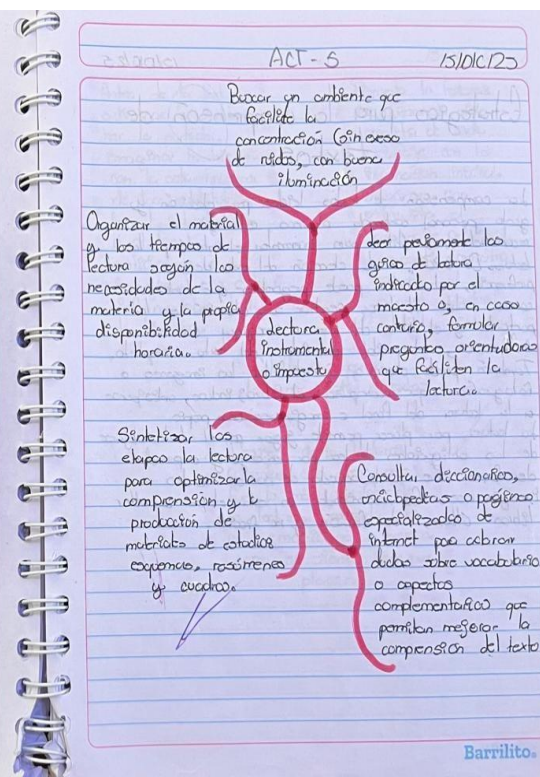 ACT - 5
15/DIC/23
Buscar un ambiente que
facilite la
concentración (sin exeso
de ruidos, con buena
iluminación
Organizar el material
y los tiempos de
lectura según las
necesidades de la
materia y la propia
disponibilidad
horaria.
Leer previamente las
guías de lectura
indicado por el
maestro o, en caso
contrario, formular
preguntas orientadoras
que faciliten la
lectura.
Lectura
instrumental
o impuesta
Sintetizar las
etapas la lectura
para optimizar la
comprensión y la
producción de
materiales de estudios
esquemas, resúmenes
y cuadros.
Consultar diccionarios,
enciclopedias o páginas
especializadas de
internet para
dudas sobre vocabulario
o aspectos
complementarios que
permitan mejorar la
comprensión del texto
Barrilito